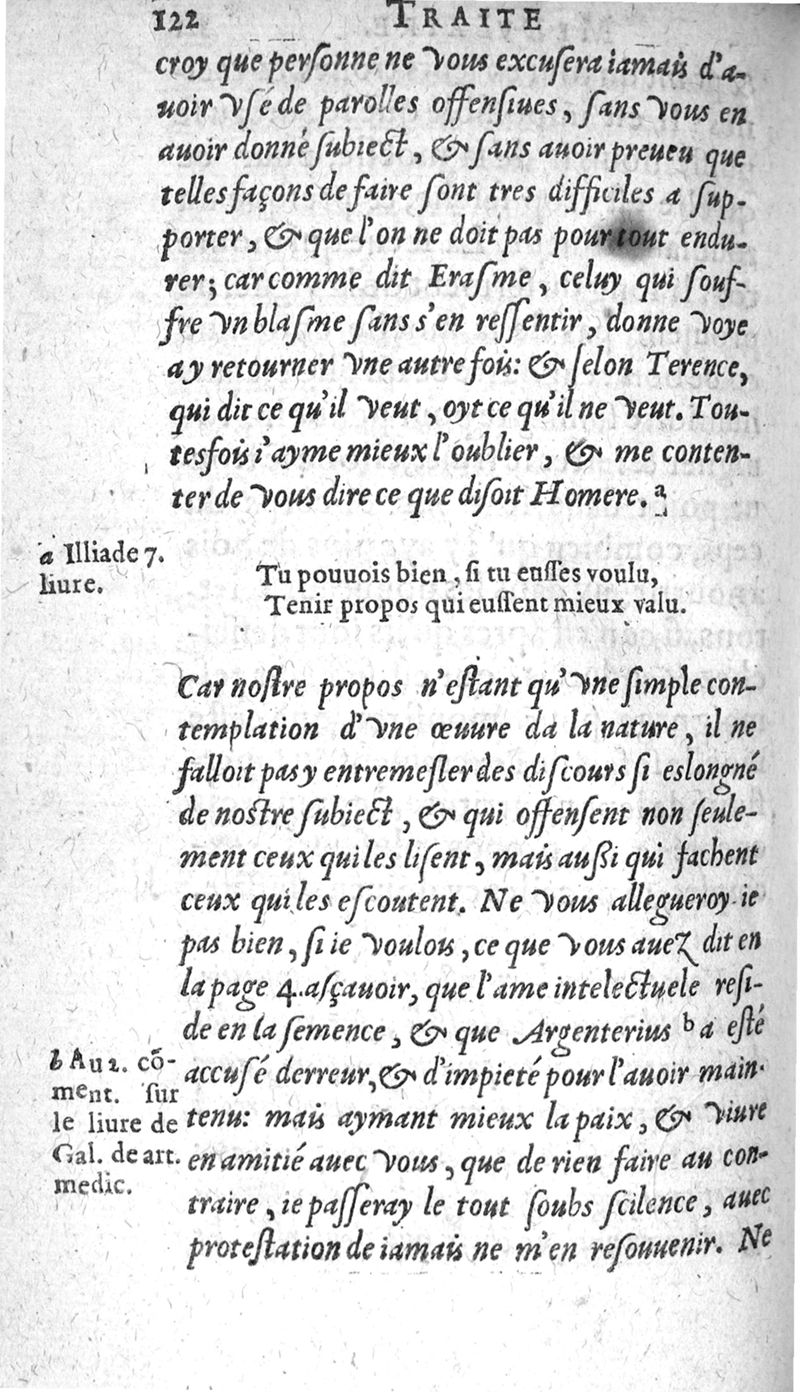 122 TRAITE
croy que personne ne vous excusera iamais d'a-
uoir vsé de parolles offensiues, sans vous en
auoir donné subiect, & sans auoir preueu que
telles façons de faire sont tres difficiles a sup-
porter, & que l'on ne doit pas pour tout endu-
rer; car comme dit Erasme, celuy qui souf-
fre vn blasme sans s'en ressentir, donne voye
a y retourner vne autre fois: & selon Terence,
qui dit ce qu'il veut, oyt ce qu'il ne veut. Tou-
tesfois i'ayme mieux l'oublier, & me conten-
ter de vous dire ce que disoit Homere. a
a Illiade 7.
liure.
Tu pouuois bien, si tu eusses voulu,
Tenir propos qui eussent mieux valu.
Car nostre propos n'estant qu'vne simple con-
templation d'vne œuure da la nature, il ne
falloit pas y entremesler des discours si eslongné
de nostre subiect, & qui offensent non seule-
ment ceux qui les lisent, mais aussi qui fachent
ceux qui les escoutent. Ne vous allegueroy-ie
pas bien, si ie voulois, ce que vous auez dit en
la page 4. asçauoir, que l'ame intelectuele resi-
de en la semence, & que Argenterius b a esté
accusé derreur, & d'impieté pour l'auoir main-
tenu: mais aymant mieux la paix, & viure
en amitié auec vous, que de rien faire au con-
traire, ie passeray le tout soubs scilence, auec
protestation de iamais ne m'en resouuenir. Ne
b Au 2. cõ-
ment. sur
le liure de
Gal. de art.
medic.